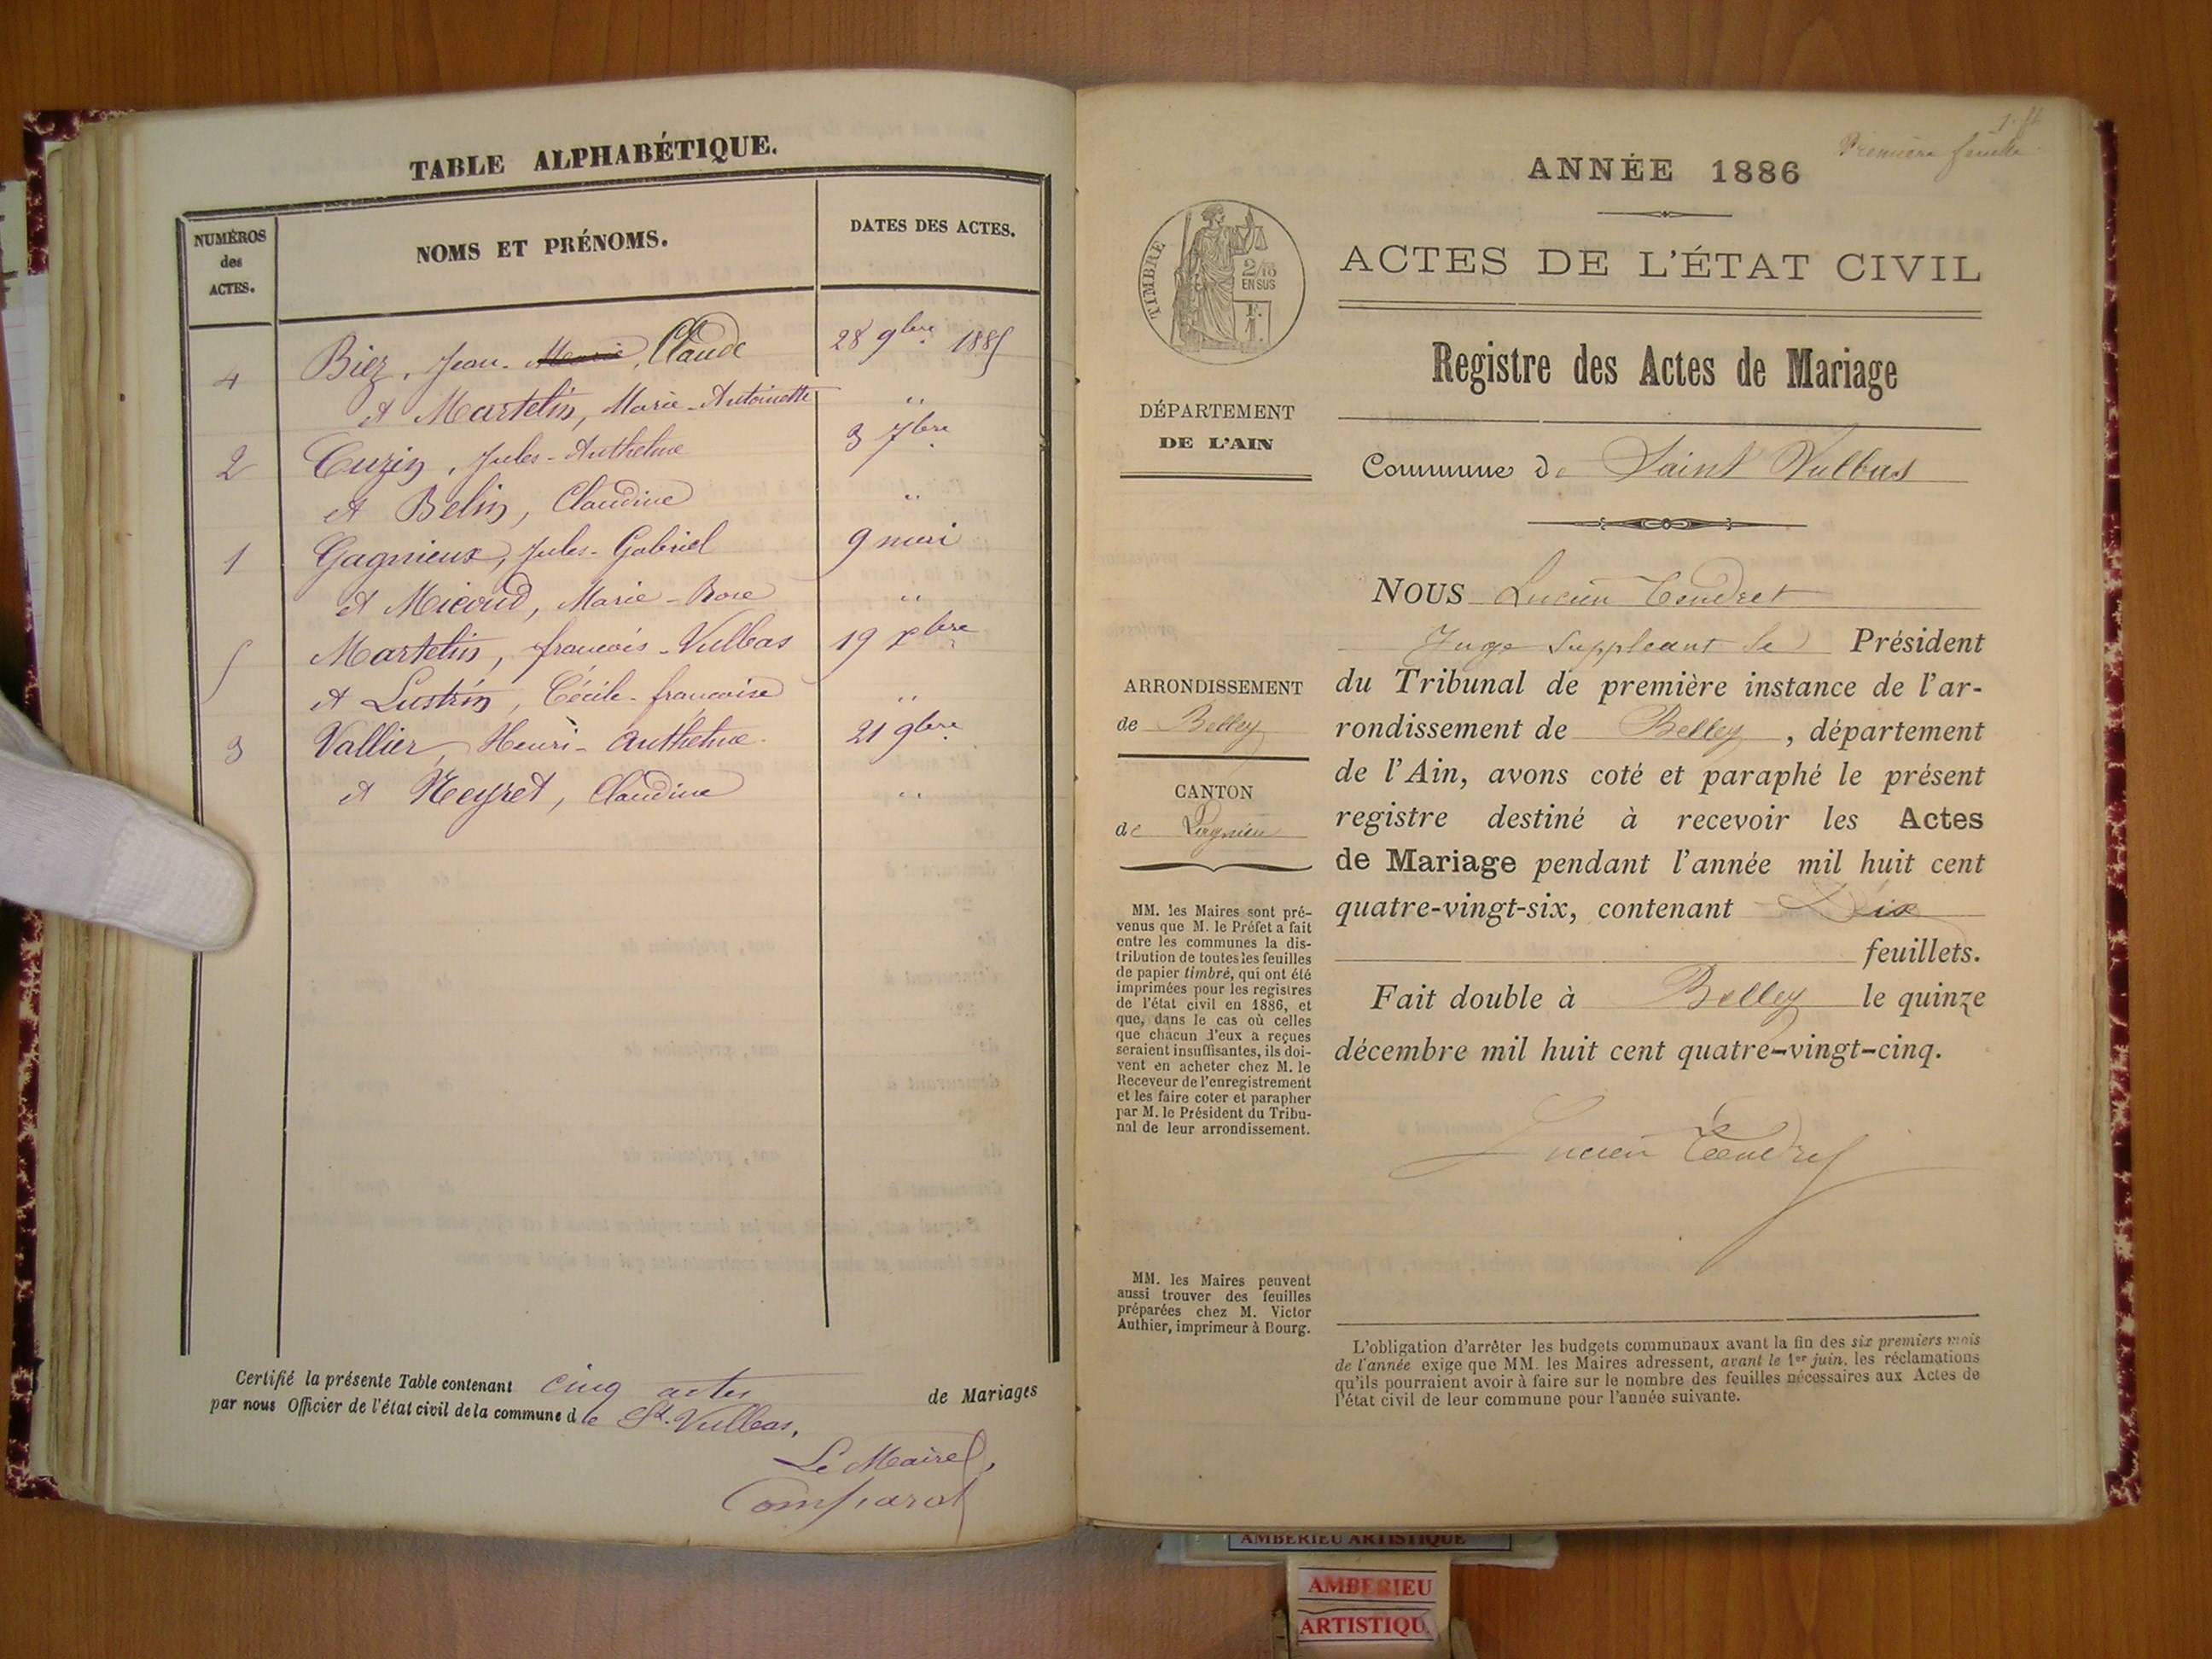 TABLE ALPHABÉTIQUE.
NUMÉROS
des
ACTES.
NOMS ET PRÉNOMS.
DATES DES ACTES.
4 Biez, Jean-Marie, Claude 28 9bre 1885
et Martelin, Marie-Antoinette "
2 Cuzin, Jules-Anthelme 3 7bre
et Belin, Claudine "
1 Gagnieux, Jules-Gabriel 9 mai
et Micoud, Marie-Rose "
5 Martelin, françois-Vulbas 19 Xbre
et Lustrin, Cécile-françoise "
3 Vallier, Henri-Anthelme 21 9bre
et Neyret, Claudine "
Certifié la présente Table contenant cinq actes de Mariages
par nous Officier de l'état civil de la commune de St. Vulbas,
Le Maire,
Comparat
Première feuille
ANNÉE 1886
TIMBRE
2/10
EN SUS
ACTES DE L'ÉTAT CIVIL
Registre des Actes de Mariage
DÉPARTEMENT
DE L'AIN
Commune de Saint Vulbas
NOUS Lucien Tendret
Juge suppléant le Président
du Tribunal de première instance de l'ar-
rondissement de Belley, département
de l'Ain, avons coté et paraphé le présent
registre destiné à recevoir les Actes
de Mariage pendant l'année mil huit cent
quatre-vingt-six, contenant Dix
feuillets.
Fait double à Belley le quinze
décembre mil huit cent quatre-vingt-cinq.
Lucien Tendret
ARRONDISSEMENT
de Belley
CANTON
de Lagnieu
MM. les Maires sont pré-
venus que M. le Préfet a fait
entre les communes la dis-
tribution de toutes les feuilles
de papier timbré, qui ont été
imprimées pour les registres
de l'état civil en 1886, et
que, dans le cas où celles
que chacun d'eux a reçues
seraient insuffisantes, ils doi-
vent en acheter chez M. le
Receveur de l'enregistrement
et les faire coter et parapher
par M. le Président du Tribu-
nal de leur arrondissement.
MM. les Maires peuvent
aussi trouver des feuilles
préparées chez M. Victor
Authier, imprimeur à Bourg.
L'obligation d'arrêter les budgets communaux avant la fin des six premiers mois
de l'année exige que MM. les Maires adressent, avant le 1er juin, les réclamations
qu'ils pourraient avoir à faire sur le nombre des feuilles nécessaires aux Actes de
l'état civil de leur commune pour l'année suivante.
AMBERIEU ARTISTIQUE
AMBERIEU
ARTISTIQU